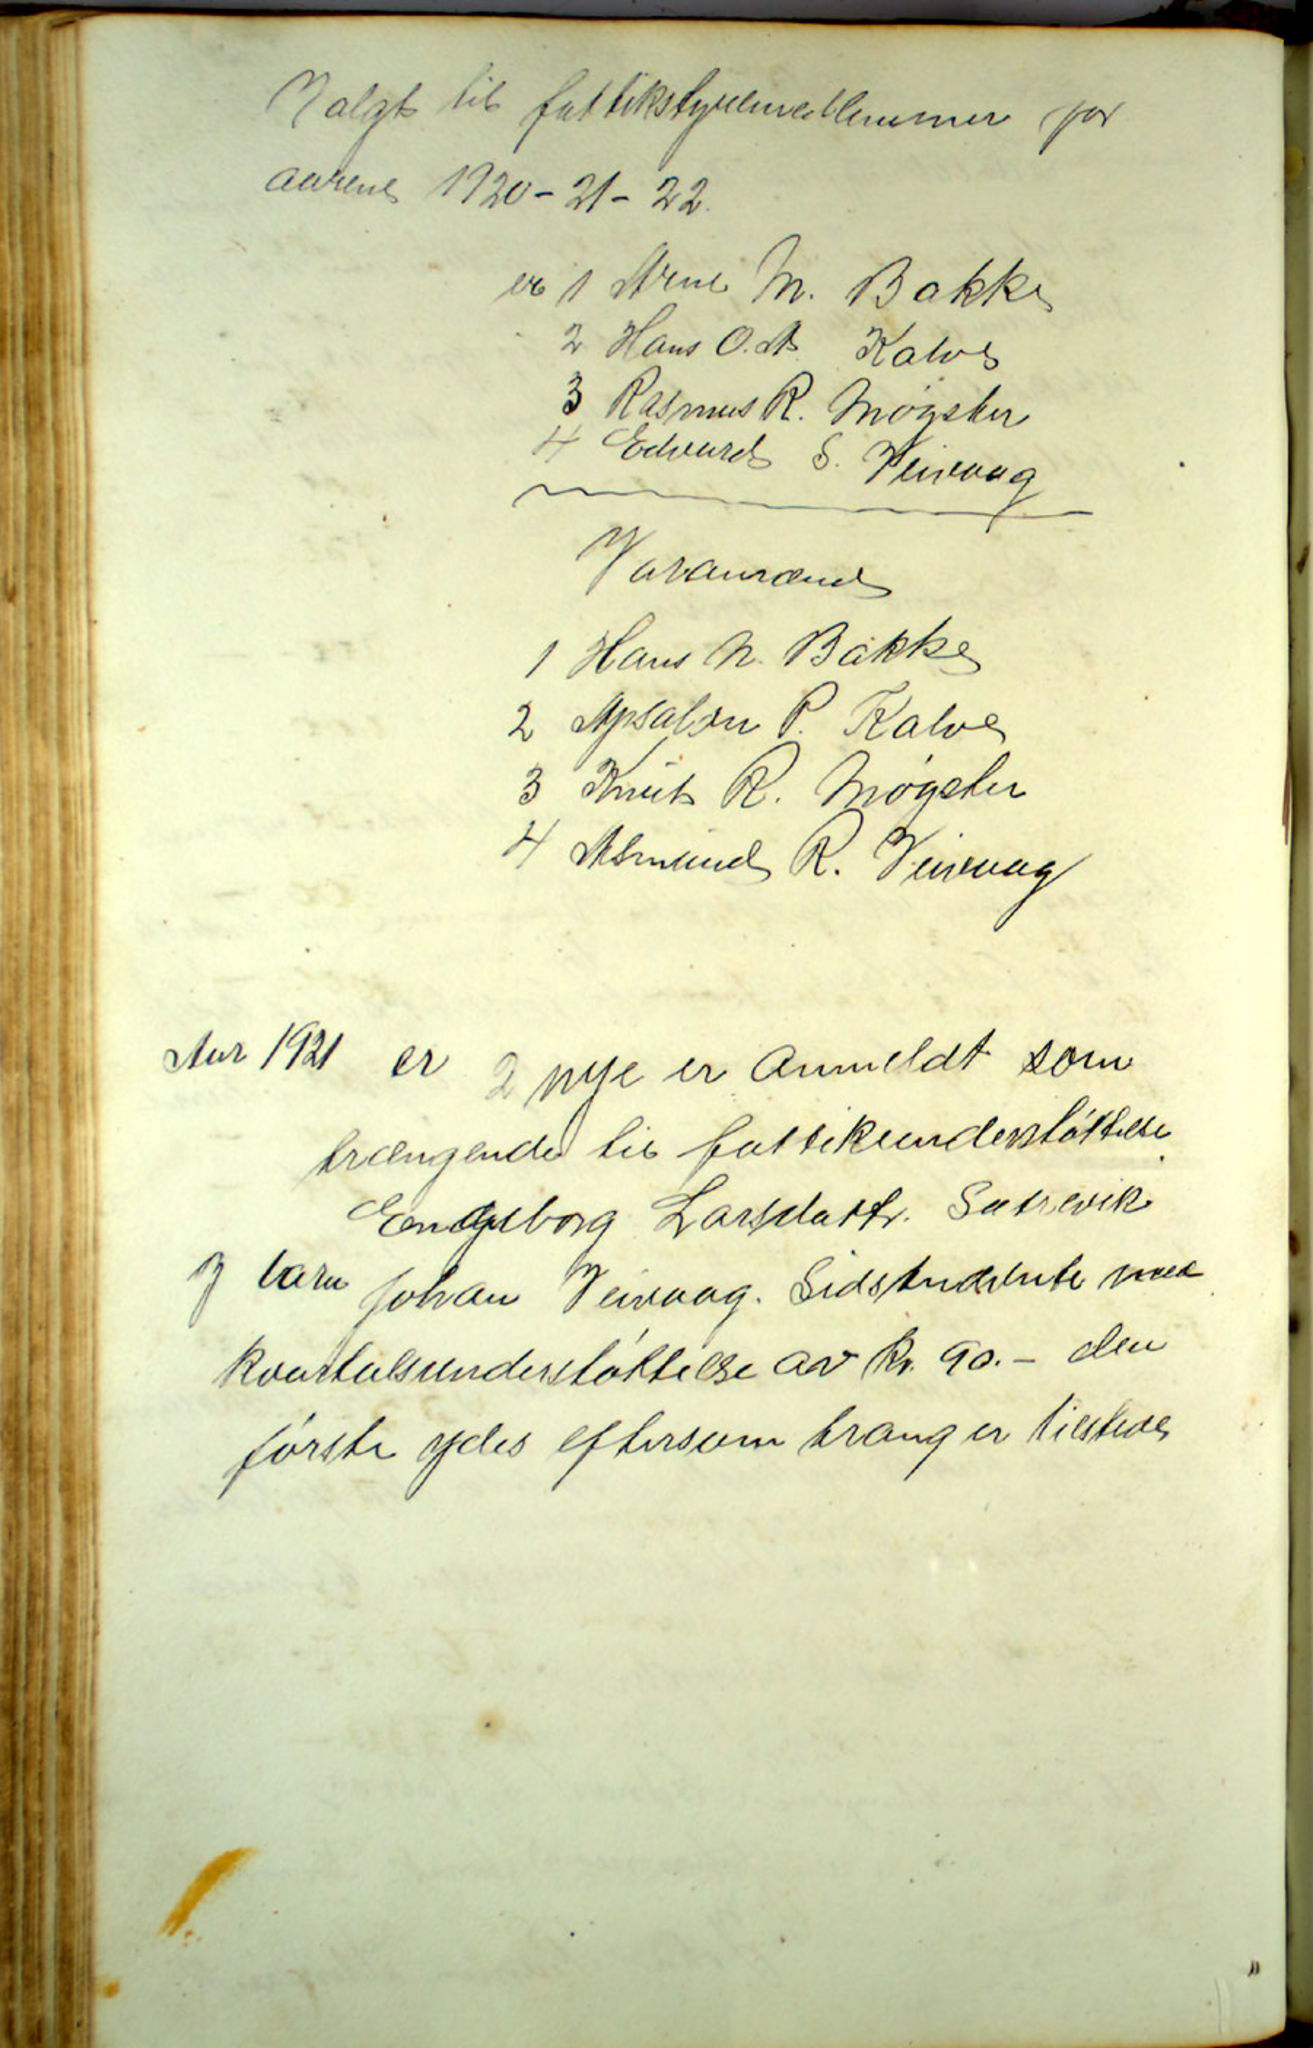 Valgt til fattikstyremedlemmer for
aarene 1920-21-22.
er 1 Arne M. Bakke
2 Hans O. A. Kalve
3 Rasmus R. Møgster
4 Edvard S. Veivaag
Varamænd
1 Hans N. Bakke
2 Apsalon P. Kalve
3 Knut R. Møgster
4 Asmund R. Veivaag
Aar 1921 er 2 nye er anmeldt som
trængende til fattikunderstøttelse
Engeborg Larsdattr. Sætrevik
barn Johan Veivaag. Sidstnævnte med
kvartalsunderstøttelse av kr. 90.- den
første ydes eftersom trang er tilstede